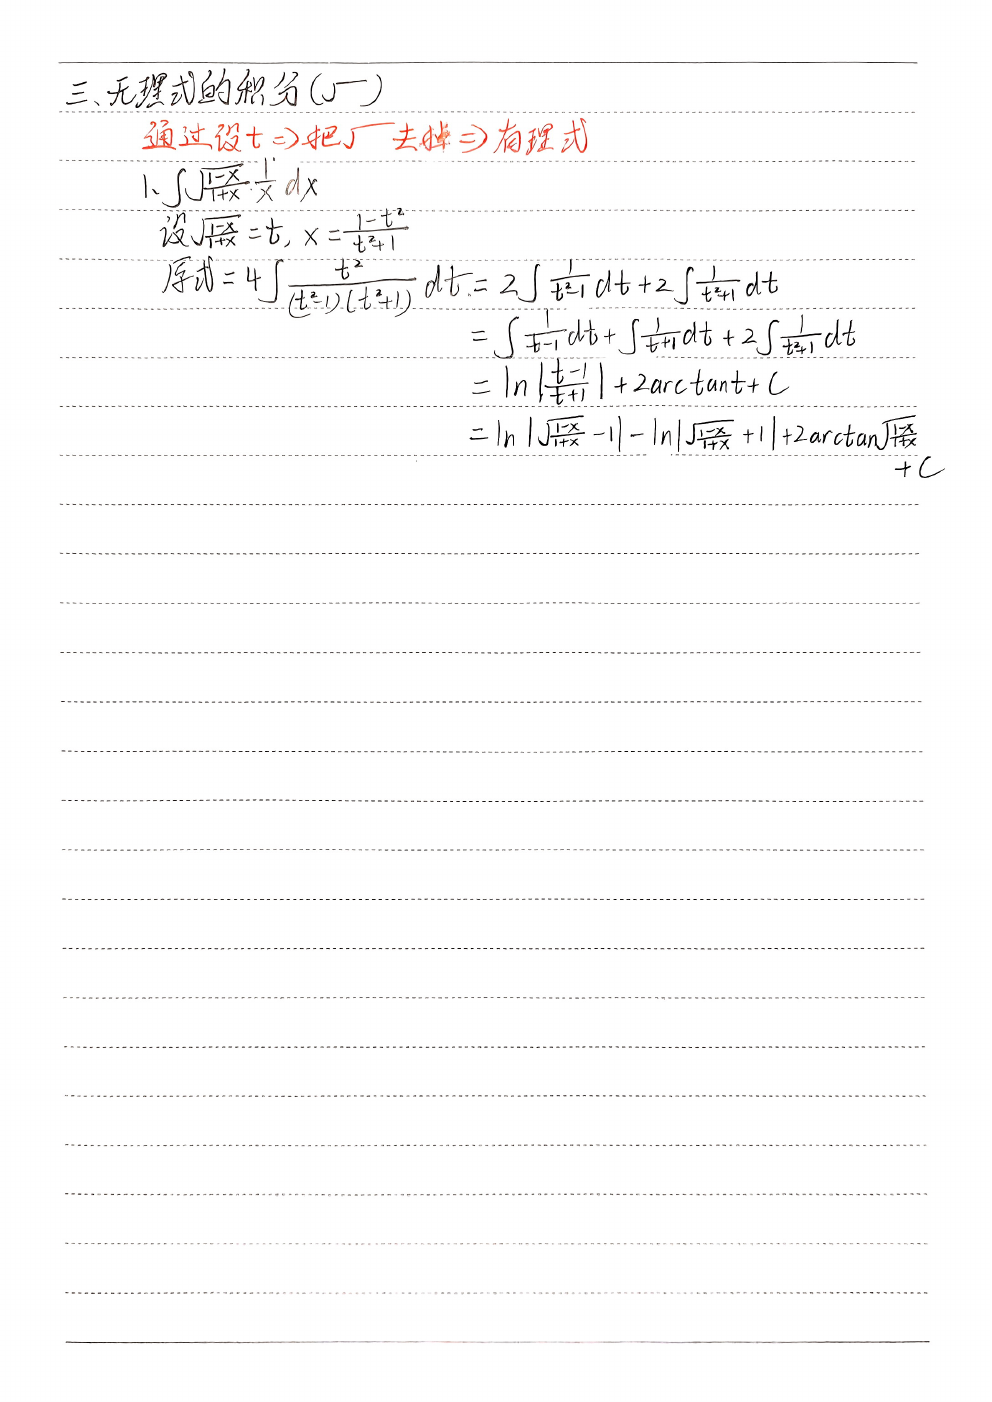 三、无理式的积分(√‾)
通过设t⇒把√‾去掉⇒有理式
1、∫√((1-x)/(1+x))·(1/x)dx
设√((1-x)/(1+x))=t, x=(1-t²)/(t²+1)
原式=4∫t²/((t²-1)(t²+1))dt=2∫1/(t²-1)dt+2∫1/(t²+1)dt
=∫1/(t-1)dt+∫1/(t+1)dt+2∫1/(t²+1)dt
=ln|(t-1)/(t+1)|+2arctant+C
=ln|√((1-x)/(1+x))-1|-ln|√((1-x)/(1+x))+1|+2arctan√((1-x)/(1+x))
+C